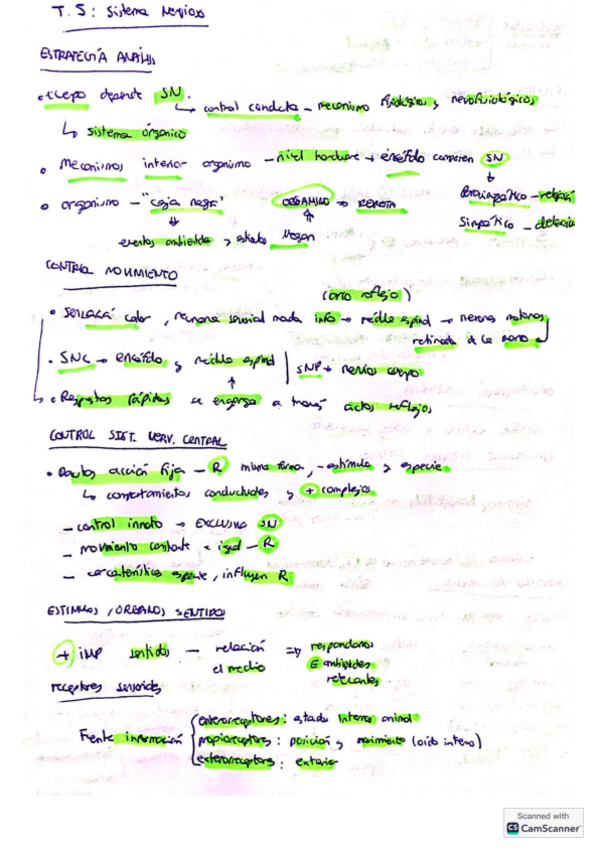 T. 5: Sistema Nervioso
ESTRATEGIA ANÁLISIS
• cuerpo depende SN.
↳ control conducta – mecanismo fisiológicos y neurofisiológicos
↳ sistema órganico
• Mecanismos interior organismo – nivel hardware → encéfalo comparten SN
• organismo – "caja negra"
ORGANISMO → RESPUESTA
Parasimpático – relajación
Simpático – detección
eventos ambientales y estados
CONTROL MOVIMIENTO
(arco reflejo)
• Sensación calor, neurona sensorial manda info → médula espinal → neurona motora
retirada de la mano
• SNC → encéfalo y médula espinal | SNP → nervios cuerpo
↳ • Respuestas rápidas se encarga a través actos reflejos
CONTROL SIST. NERV. CENTRAL
• Pautos acción fija – R misma forma, – estímulo y especie
↳ comportamientos conductuales y + complejos
– control innato → EXCLUSIVO SN
– movimiento constante e igual – R
– característica especie, influyen R
ESTÍMULOS / ÓRGANOS SENTIDO
+ IMP sentidos – relación ⇒ respondamos
el medio E ambientales
relevantes
receptores sensoriales
Frente información
enterorreceptores: estado interno animal
propioceptores: posición y movimiento (oido interno)
exterorreceptores: exterior
Scanned with
CS CamScanner